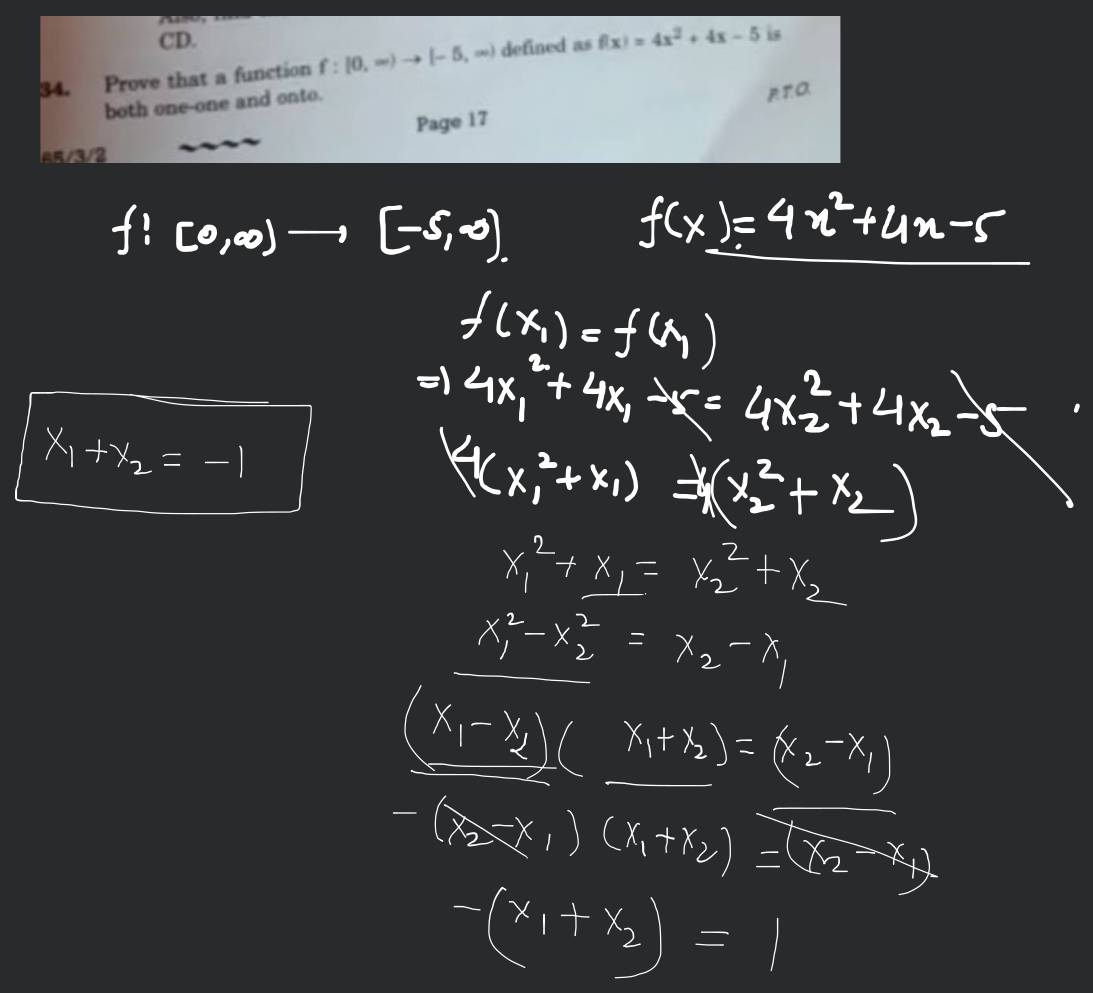 CD.
34. Prove that a function f : [0, ∞) → [– 5, ∞) defined as f(x) = 4x² + 4x – 5 is
both one-one and onto.
65/3/2
Page 17
P.T.O.
f: [0,∞) → [-5,∞). f(x) = 4x²+4x-5
f(x₁) = f(x₁)
⇒ 4x₁² + 4x₁ -5 = 4x₂² + 4x₂ -5
x₁ + x₂ = -1
4(x₁² + x₁) = 4(x₂² + x₂)
x₁² + x₁ = x₂² + x₂
x₁² - x₂² = x₂ - x₁
(x₁ - x₂)(x₁ + x₂) = (x₂ - x₁)
-(x₂ - x₁)(x₁ + x₂) = (x₂ - x₁)
-(x₁ + x₂) = 1